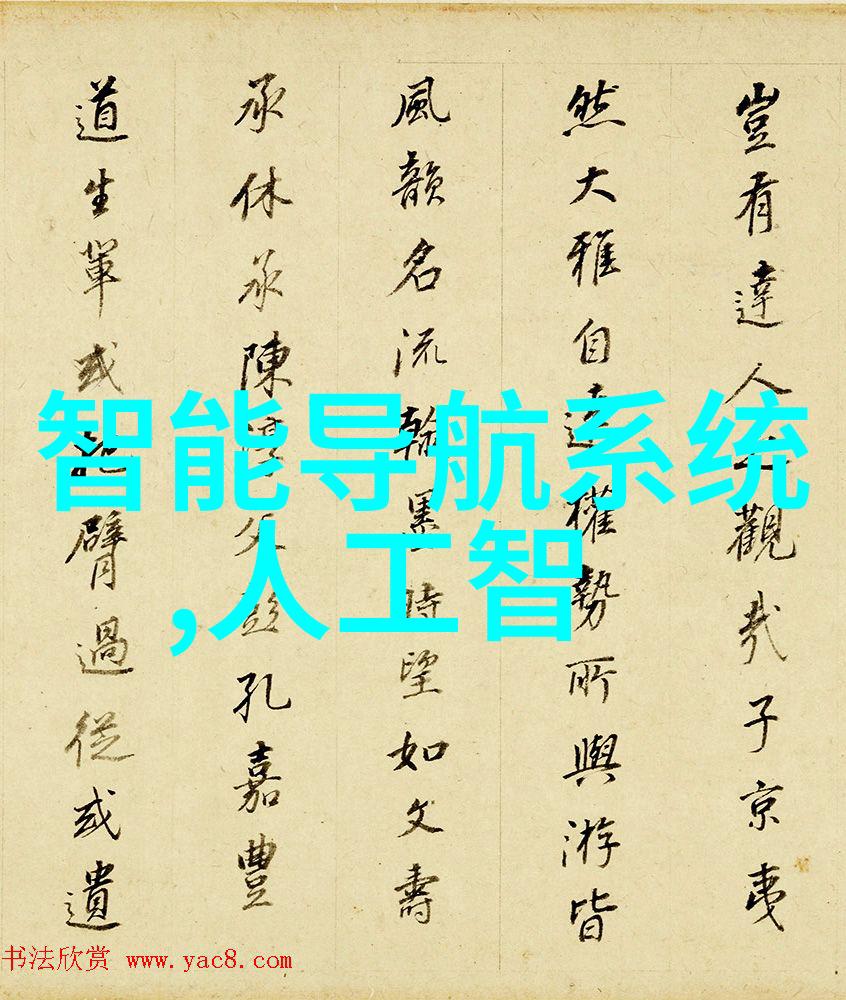 豈有達人之觀哉子京夷
然大雅自遠權勢所與游皆
風韻名流翰墨時望如文壽
承休承陳淳父彭孔嘉豐
道生軰或把臂過從或遺
智能导航系统
,人工智
书法欣赏 www.yac8.com